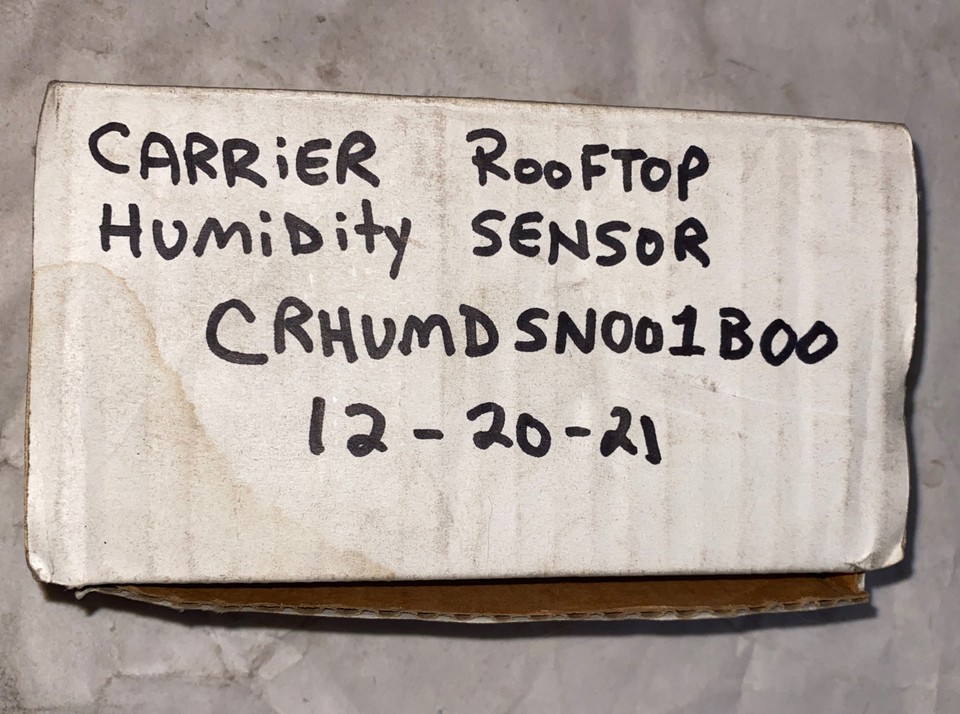 CARRiER ROOFTOP
HUMiDity SENSOR
CRHUMDSN001B00
12-20-21